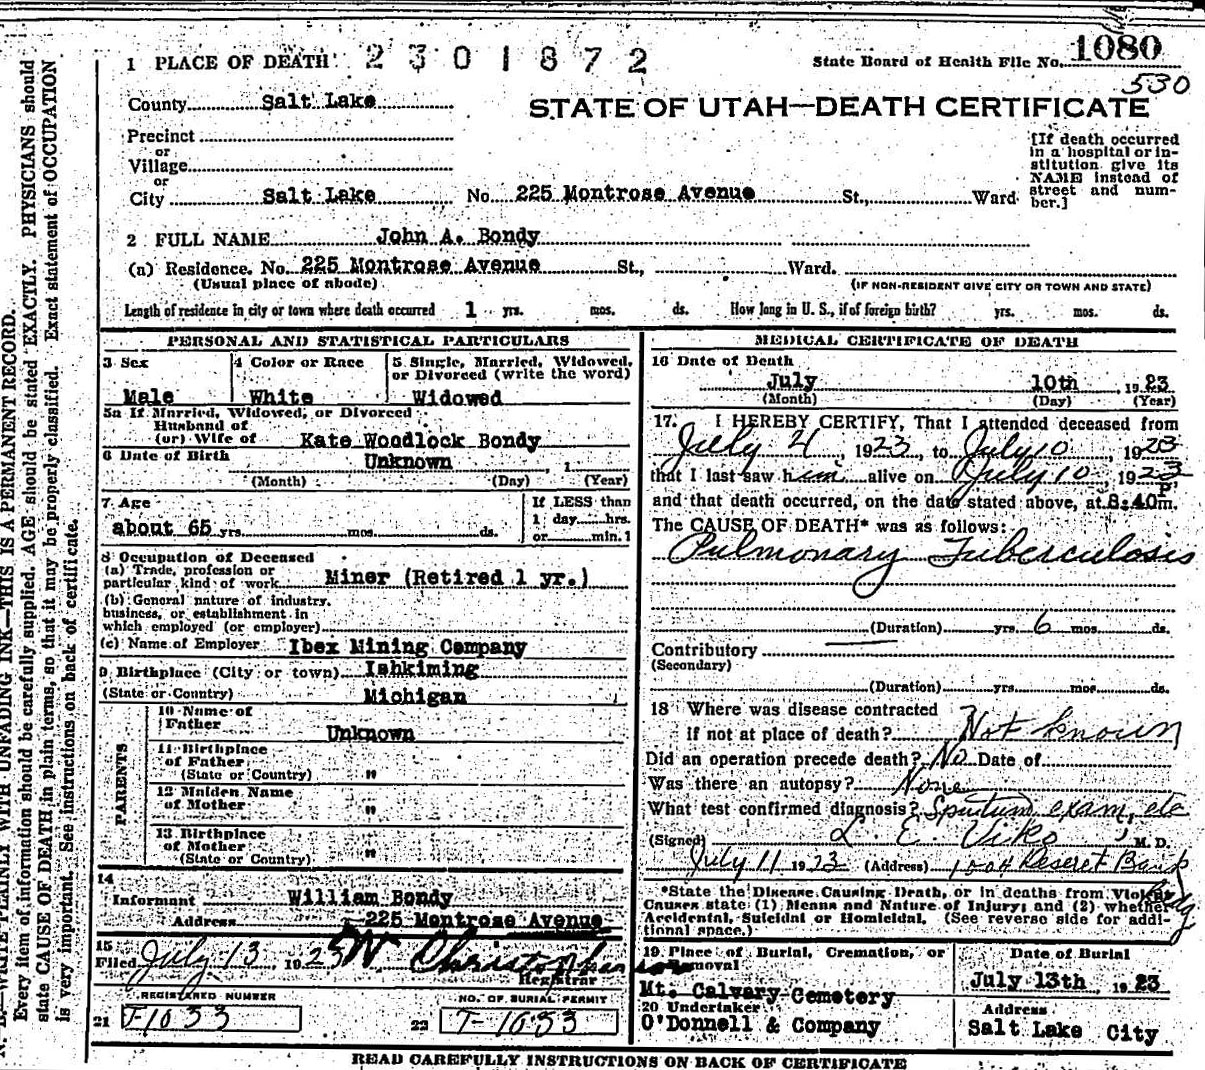 1080
State Board of Health File No.
530
1 PLACE OF DEATH 2301872
STATE OF UTAH—DEATH CERTIFICATE
County Salt Lake
Precinct
or
Village
or
City Salt Lake No. 225 Montrose Avenue St., Ward
[If death occurred
in a hospital or in-
stitution give its
NAME instead of
street and num-
ber.]
2 FULL NAME John A. Bondy
(a) Residence. No. 225 Montrose Avenue St., Ward.
(Usual place of abode) (IF NON-RESIDENT GIVE CITY OR TOWN AND STATE)
Length of residence in city or town where death occurred 1 yrs. mos. ds. How long in U. S., if of foreign birth? yrs. mos. ds.
PERSONAL AND STATISTICAL PARTICULARS
3 Sex
Male
4 Color or Race
White
5 Single, Married, Widowed,
or Divorced (write the word)
Widowed
5a If Married, Widowed, or Divorced
Husband of
(or) Wife of Kate Woodlock Bondy
6 Date of Birth Unknown , 1
(Month) (Day) (Year)
7 Age
about 65 yrs. mos. ds.
If LESS than
1 day hrs.
or min. 1
8 Occupation of Deceased
(a) Trade, profession or
particular kind of work Miner (Retired 1 yr.)
(b) General nature of industry,
business, or establishment in
which employed (or employer)
(c) Name of Employer Ibex Mining Company
9 Birthplace (City or town) Ishkiming
(State or Country) Michigan
PARENTS
10 Name of
Father Unknown
11 Birthplace
of Father
(State or Country) "
12 Maiden Name
of Mother "
13 Birthplace
of Mother
(State or Country) "
14
Informant William Bondy
Address 225 Montrose Avenue
15
Filed July 13, 1923 W Christopherson
Registrar
REGISTERED NUMBER NO. OF BURIAL PERMIT
21 F1033 22 T-1033
MEDICAL CERTIFICATE OF DEATH
16 Date of Death
July 10th, 1923
(Month) (Day) (Year)
17. I HEREBY CERTIFY, That I attended deceased from
July 21, 1923, to July 10, 1923
that I last saw him alive on July 10, 1923
and that death occurred, on the date stated above, at 8:40 P m.
The CAUSE OF DEATH* was as follows:
Pulmonary Tuberculosis
(Duration) yrs. 6 mos. ds.
Contributory
(Secondary)
(Duration) yrs. mos. ds.
18 Where was disease contracted
If not at place of death? Not known
Did an operation precede death? No Date of
Was there an autopsy? None
What test confirmed diagnosis? Sputum exam, etc
(Signed) L. E. Viko, M. D.
July 11 1923 (Address) 1004 Deseret Bank Bldg
*State the Disease Causing Death, or in deaths from Violent
Causes state (1) Means and Nature of Injury; and (2) whether
Accidental, Suicidal or Homicidal. (See reverse side for addi-
tional space.)
19 Place of Burial, Cremation, or
Removal
Mt. Calvary Cemetery
Date of Burial
July 13th, 1923
20 Undertaker
O'Donnell & Company
Address
Salt Lake City
READ CAREFULLY INSTRUCTIONS ON BACK OF CERTIFICATE
N. B.—WRITE PLAINLY WITH UNFADING INK—THIS IS A PERMANENT RECORD.
Every item of information should be carefully supplied. AGE should be stated EXACTLY. PHYSICIANS should
state CAUSE OF DEATH in plain terms, so that it may be properly classified. Exact statement of OCCUPATION
is very important. See instructions on back of certificate.